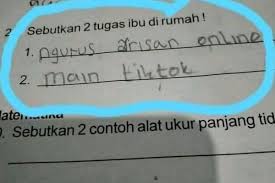 2. Sebutkan 2 tugas ibu di rumah !
1. ngurus arisan online
2. main tiktok
. Sebutkan 2 contoh alat ukur panjang tid